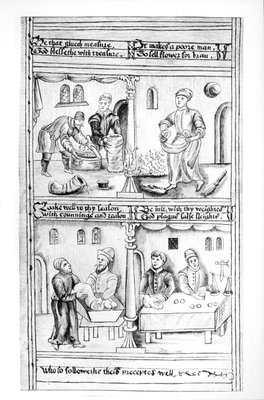 He that giueth measure.
God blessethe with treasure.
It maketh a poore man.
To sell flower for bran.
Bake well to thy season.
with cunninge and reason
Be iust, with thy weighte
God plagues false sleighte.
Who so followethe these preceptes well,